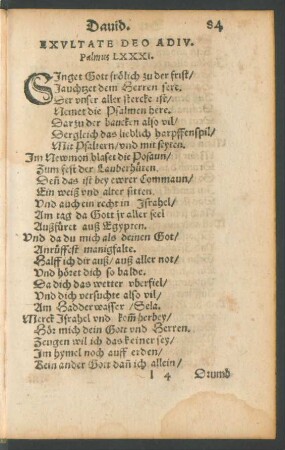 Dauid. 84
EXVLTATE DEO ADIV.
Psalmus LXXXI.
SInget Gott frölich zu der frist/
Jauchtzet dem Herren sere.
Der vnser aller stercke ist/
Nemet die Psalmen here.
Dar zu der baucken also vil/
Der gleich das lieblich harpffenspil/
Mit Psaltern/vnd mit seyten.
Im Newmon blaset die Posaun/
Zum fest der Lauberhüten.
Deñ das ist bey ewrer Commaun/
Ein weiß vnd alter sitten.
Vnd auch ein recht in Israhel/
Am tag da Gott jr aller seel
Außfüret auß Egypten.
Vnd da du mich als deinen Got/
Anrüffest manigfalte.
Halff ich dir auß/ auß aller not/
Vnd hötet dich so balde.
Da dich das wetter vberfiel/
Vnd dich versuchte also vil/
Am Hadderwasser /Sela.
Merck Israhel vnd kom̃ herbey/
Hör mich dein Gott vnd Herren.
Zeugen wil ich das keiner sey/
Im hymel noch auff erden/
Kein ander Gott dañ ich allein/
l 4 Drumb